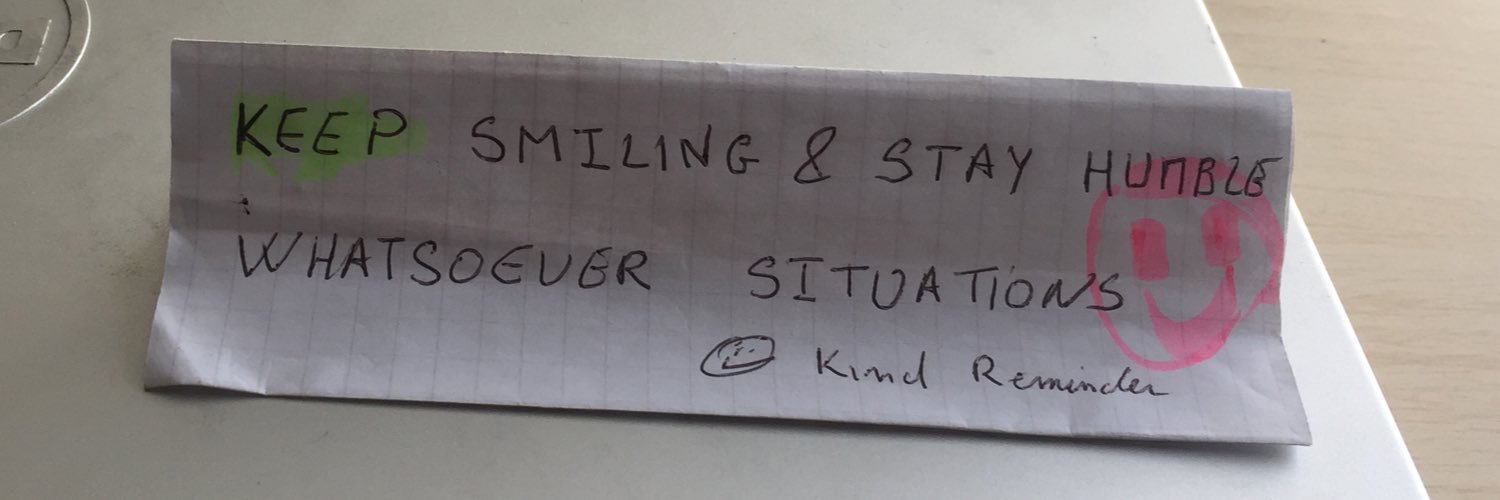 KEEP SMILING & STAY HUMBLE
WHATSOEVER SITUATIONS
Kind Reminder